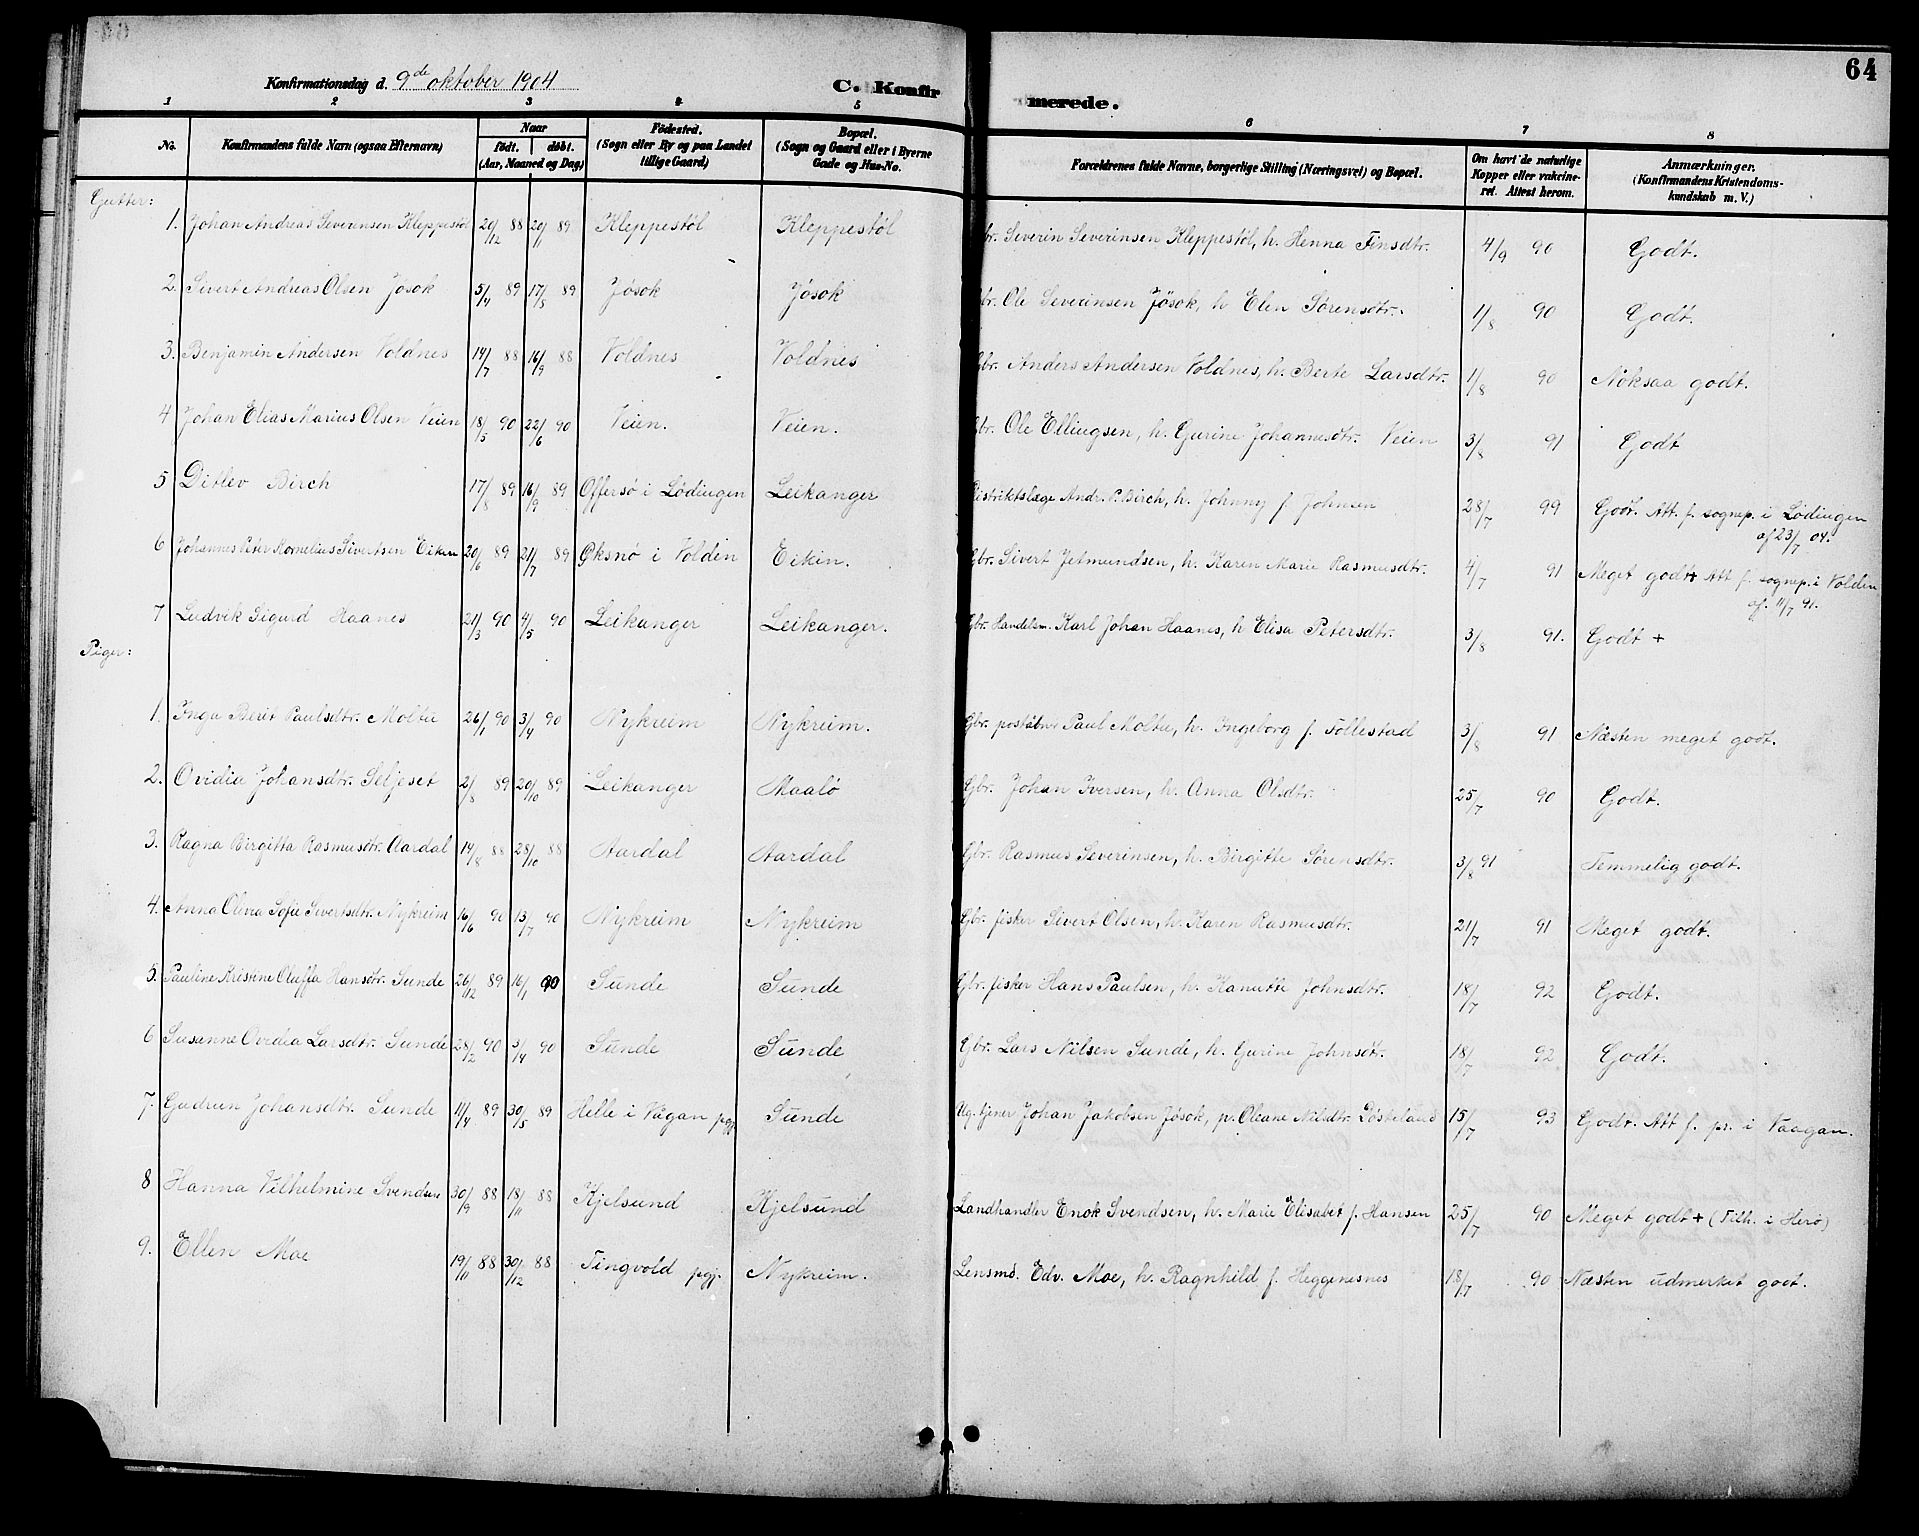 64
Konfirmationsdag d. 9de oktober 1904
C. Konfirmerede.
1 2 3 4 5 6 7 8
No. Konfirmandens fulde Navn (ogsaa Efternavn) Naar født. døbt. (Aar, Maaned og Dag) Fødested. (Sogn eller By og paa Landet tillige Gaard) Bopæl. (Sogn og Gaard eller i Byerne Gade og Hus-No. Forældrenes fulde Navne, borgerlige Stilling (Næringsvei) og Bopæl. Om havt de naturlige Kopper eller vakcineret. Attest herom. Anmærkninger. (Konfirmandens Kristendomskundskab m. V.)
Gutter:
1. Johan Andreas Severinsen Kleppestøl 20/12 88 20/1 89 Kleppestøl Kleppestøl Gbr. Severin Severinsen Kleppestøl, h. Henna Finsdtr. 4/9 90 Godt.
2. Sivert Andreas Olsen Jøsok 5/4 89 17/5 89 Jøsok Jøsok Gbr. Ole Severinsen Jøsok, h Elen Sørensdtr. 1/8 90 Godt.
3. Benjamin Andersen Voldnes 14/7 88 16/9 88 Voldnes Voldnes Gbr. Anders Andersen Voldnes, h. Berte Larsdtr. 1/8 90 Noksaa godt.
4 Johan Elias Marius Olsen Veien 18/5 90 22/6 90 Veien. Veien. Gbr. Ole Ellingsen, h. Gurine Johannesdtr. Veien 3/8 91 Godt
5 Ditlev Birch 17/8 89 16/9 89 Offersø i Lødingen Leikanger Distriktslæge Andr. P. Birch, h. Johnny f. Johnsen 28/7 99 Godt. Att. f. sognep. i Lødingen af 23/7 04.
6 Johannes Peter Kornelius Sivertsen Eikin 20/6 89 21/7 89 Øksnø i Volden Eikin. Gbr. Sivert Jetmundsen, h. Karen Marie Rasmusdtr. 4/7 91 Meget godt + Att f. sognep. i Volden af. 11/7 91.
7 Ludvik Sigurd Haanes 21/3 90 4/5 90 Leikanger Leikanger. Gbr. Handelsm. Karl Johan Haanes, h Elisa Petersdtr. 3/8 91. Godt +
Piger:
1. Inga Berit Paulsdtr. Moltu 26/1 90 3/4 90 Nykreim Nykreim. Gbr. poståbner Paul Moltu, h. Ingeborg f. Follestad 3/8 91 Næsten meget godt.
2. Ovidia Johansdtr. Seljeset 2/8 89 20/10 89 Leikanger Maalø Gbr. Johan Iversen, h. Anna Olsdtr. 25/7 90 Godt.
3. Ragna Birgitta Rasmusdtr. Aardal 14/8 88 28/10 88 Aardal Aardal Gbr. Rasmus Severinsen, h. Birgitte Sørensdtr. 3/8 91 Temmelig godt.
4. Anna Olivia Sofie Sivertsdtr. Nykreim 16/6 90 13/7 90 Nykreim Nykreim Gbr. fisker Sivert Olsen, h. Karen Rasmusdtr. 21/7 91 Meget godt.
5. Pauline Kristine Oluffa Hansdtr. Sunde 26/12 89 16/1 90 Sunde Sunde Gbr. fisker Hans Paulsen, h. Kanutte Johnsdtr. 18/7 92 Godt.
6 Susanne Ovidia Larsdtr. Sunde 28/2 90 5/4 90 Sunde Sunde Gbr. Lars Nilsen Sunde, h. Gurine Johnsdtr. 18/7 92 Godt.
7. Gudrun Johansdtr. Sunde 11/4 89 30/5 89 Helle i Vågan pgj. Sunde Ug. tjener Johan Jakobsen Jøsok, p. Oleane Nilsdtr. 15/7 93 Godt. Att f. pr. i Vaagan.
8 Hanna Vilhelmine Svendsen 30/9 88 18/11 88 Kjelsund Kjelsund Landhandler Enok Svendsen, h. Marie Elisabet f. Hansen 25/7 90 Meget godt + (Tilh. i Herø)
9. Ellen Moe 19/11 88 30/12 88 Tingvold pgj. Nykreim. Lensmd. Edv. Moe, h. Ragnhild f. Heggenesnes 18/7 90 Næsten udmerket godt.